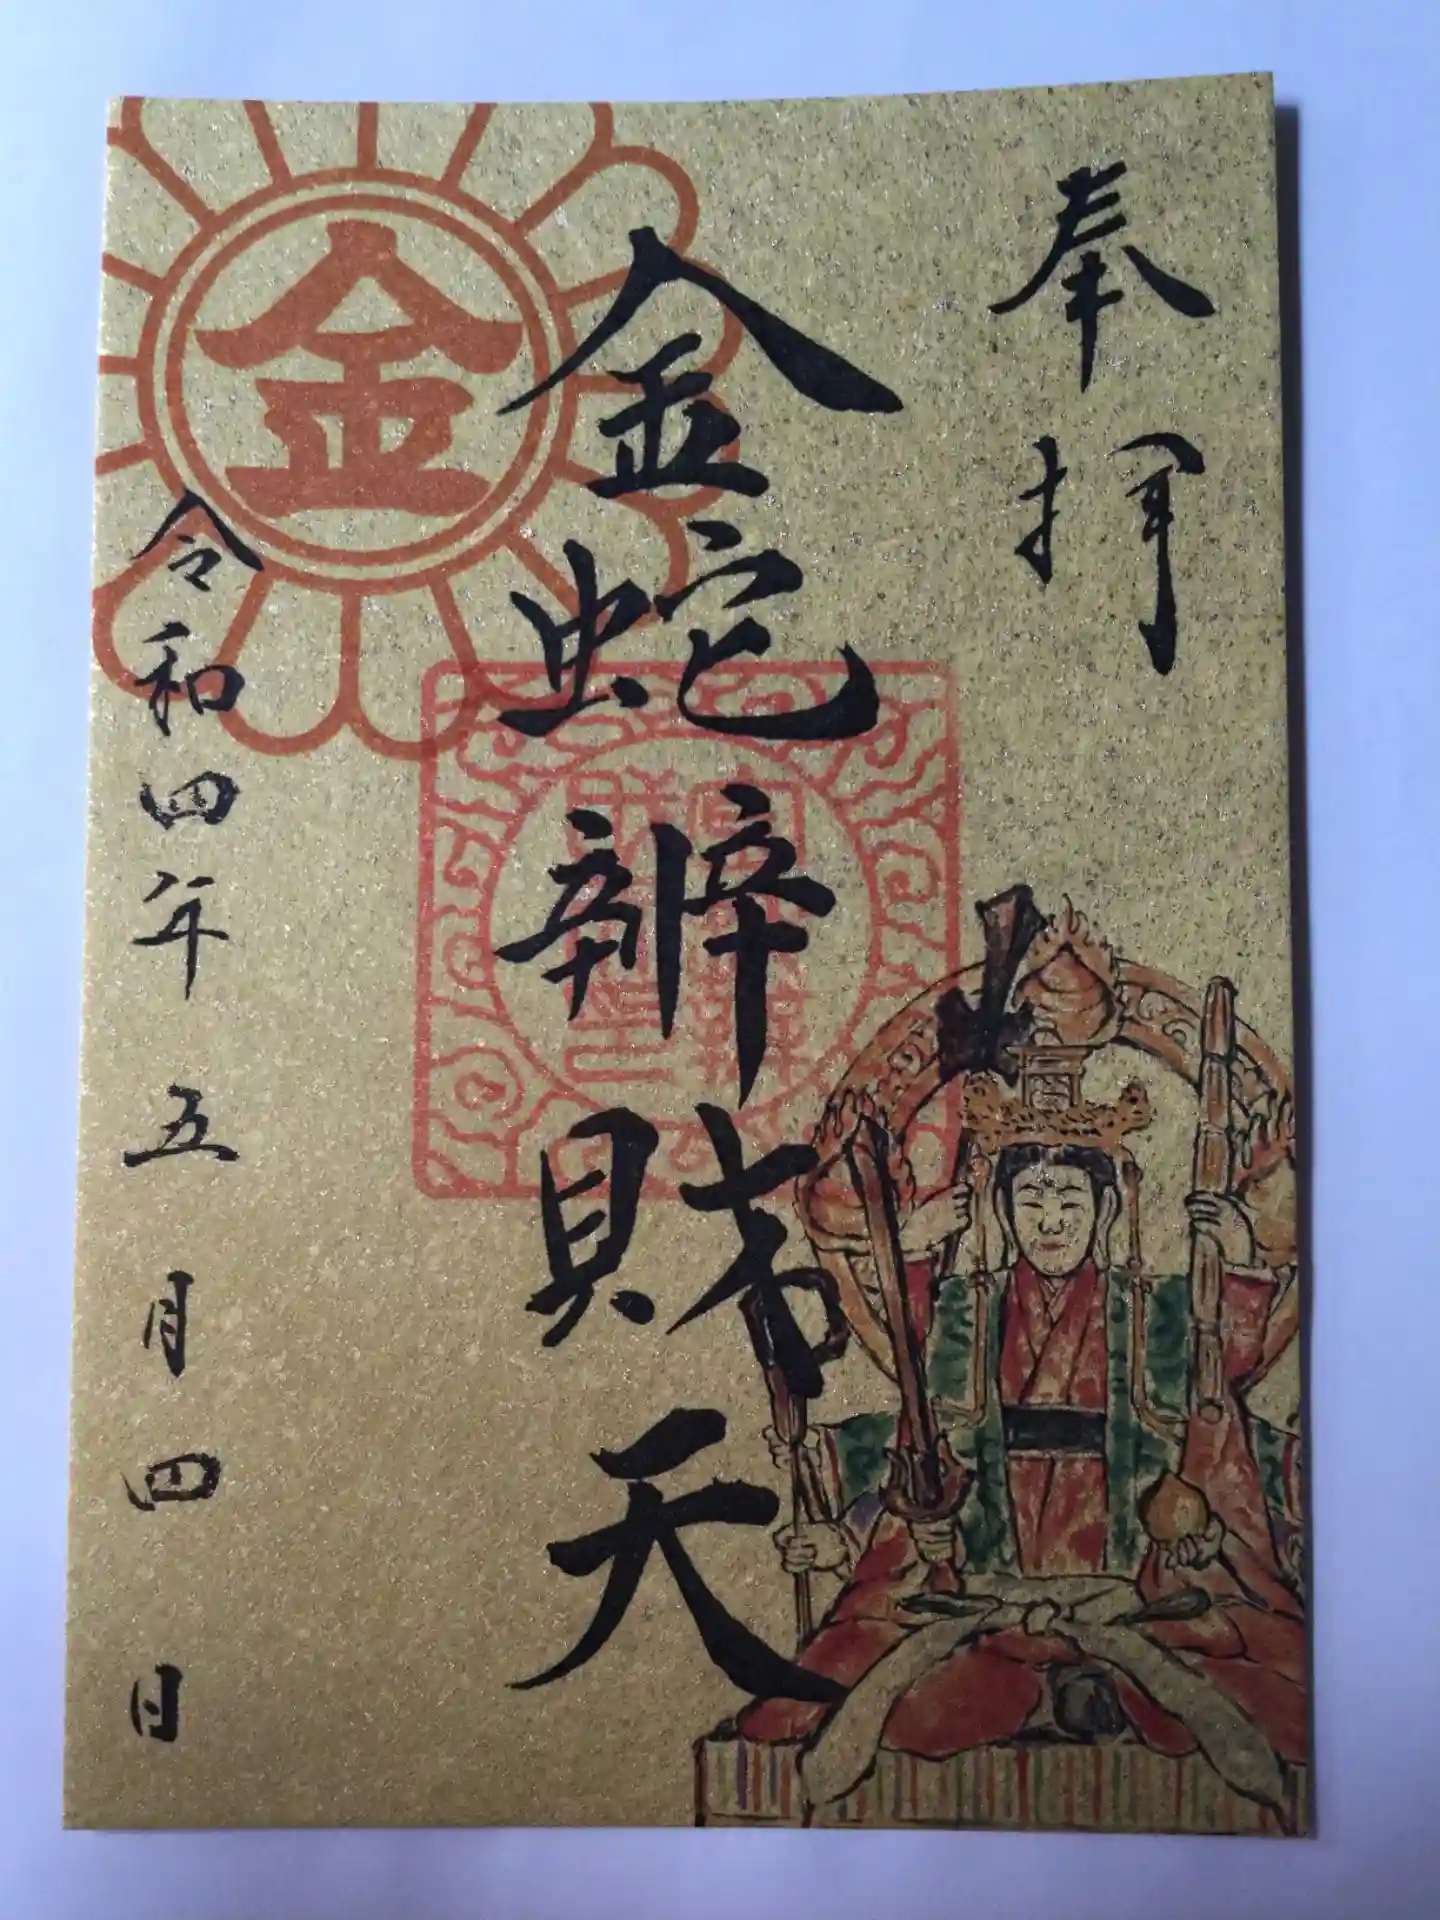 奉拝
金蛇辨財天
金
令和四年五月四日